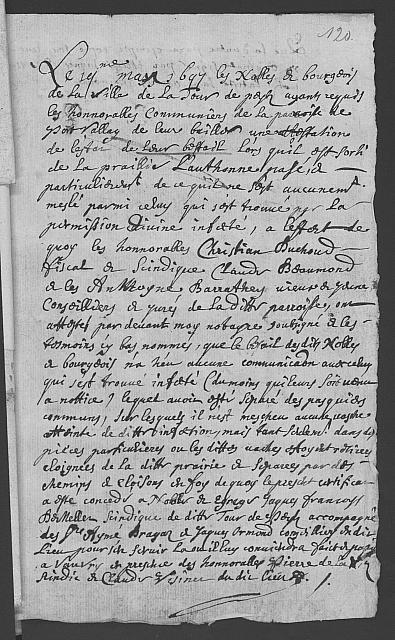 120.
Le 15me may 1697 les Nobles & bourgeois
de la Ville de la Tour de pesz ayants requis
les honnorables Communiers de la parroisse de
port Vallay de leur bailler une attestation
de lestat de leur bestail lors quil est sorti
de la praillie Lauthonne passé, &
particulierement de ce quil ne sest aucunemt
meslé parmi celuy qui sest trouvé par la
permission divine infecté, a leffect de
quoy les honnorables Christian Buchoud
fiscal & scindique Claude Beaumond
& les Anthoyne Barrathey
Conseilliers & jurés de la ditte parroisse, ont
attestés par devant moy notayre soubsigné & les
tesmoins cy bas nommés, que le bestail desdits Nobles
& bourgeois na heu aucune communication avec celuy
qui sest trouvé infecté (du moins quil leur soit venu
a notice) lequel avoit esté separé des pasquiers
communs, sur lesquels il nest mescheu aucune vache
atteinte de ditte infection mais tant seulemt dans des
pieces particulieres ou les dittes vaches estoyent
eloignées de la ditte prairie & separes par des
chemins & cloisons en foy de quoy le present certificat
a esté concedé a Nobles & egreges Jaques François
De Mellet scindique de ditte Tour de pesz accompagné
des Srs Ayme Dragar & Jaques Ormond conseilliers du dit
Lieu pour sen servir la ou il luy conviendra fait & passé
a Vauvry en presence des honnorables Pierre de la
scindic & Claude du dit lieu